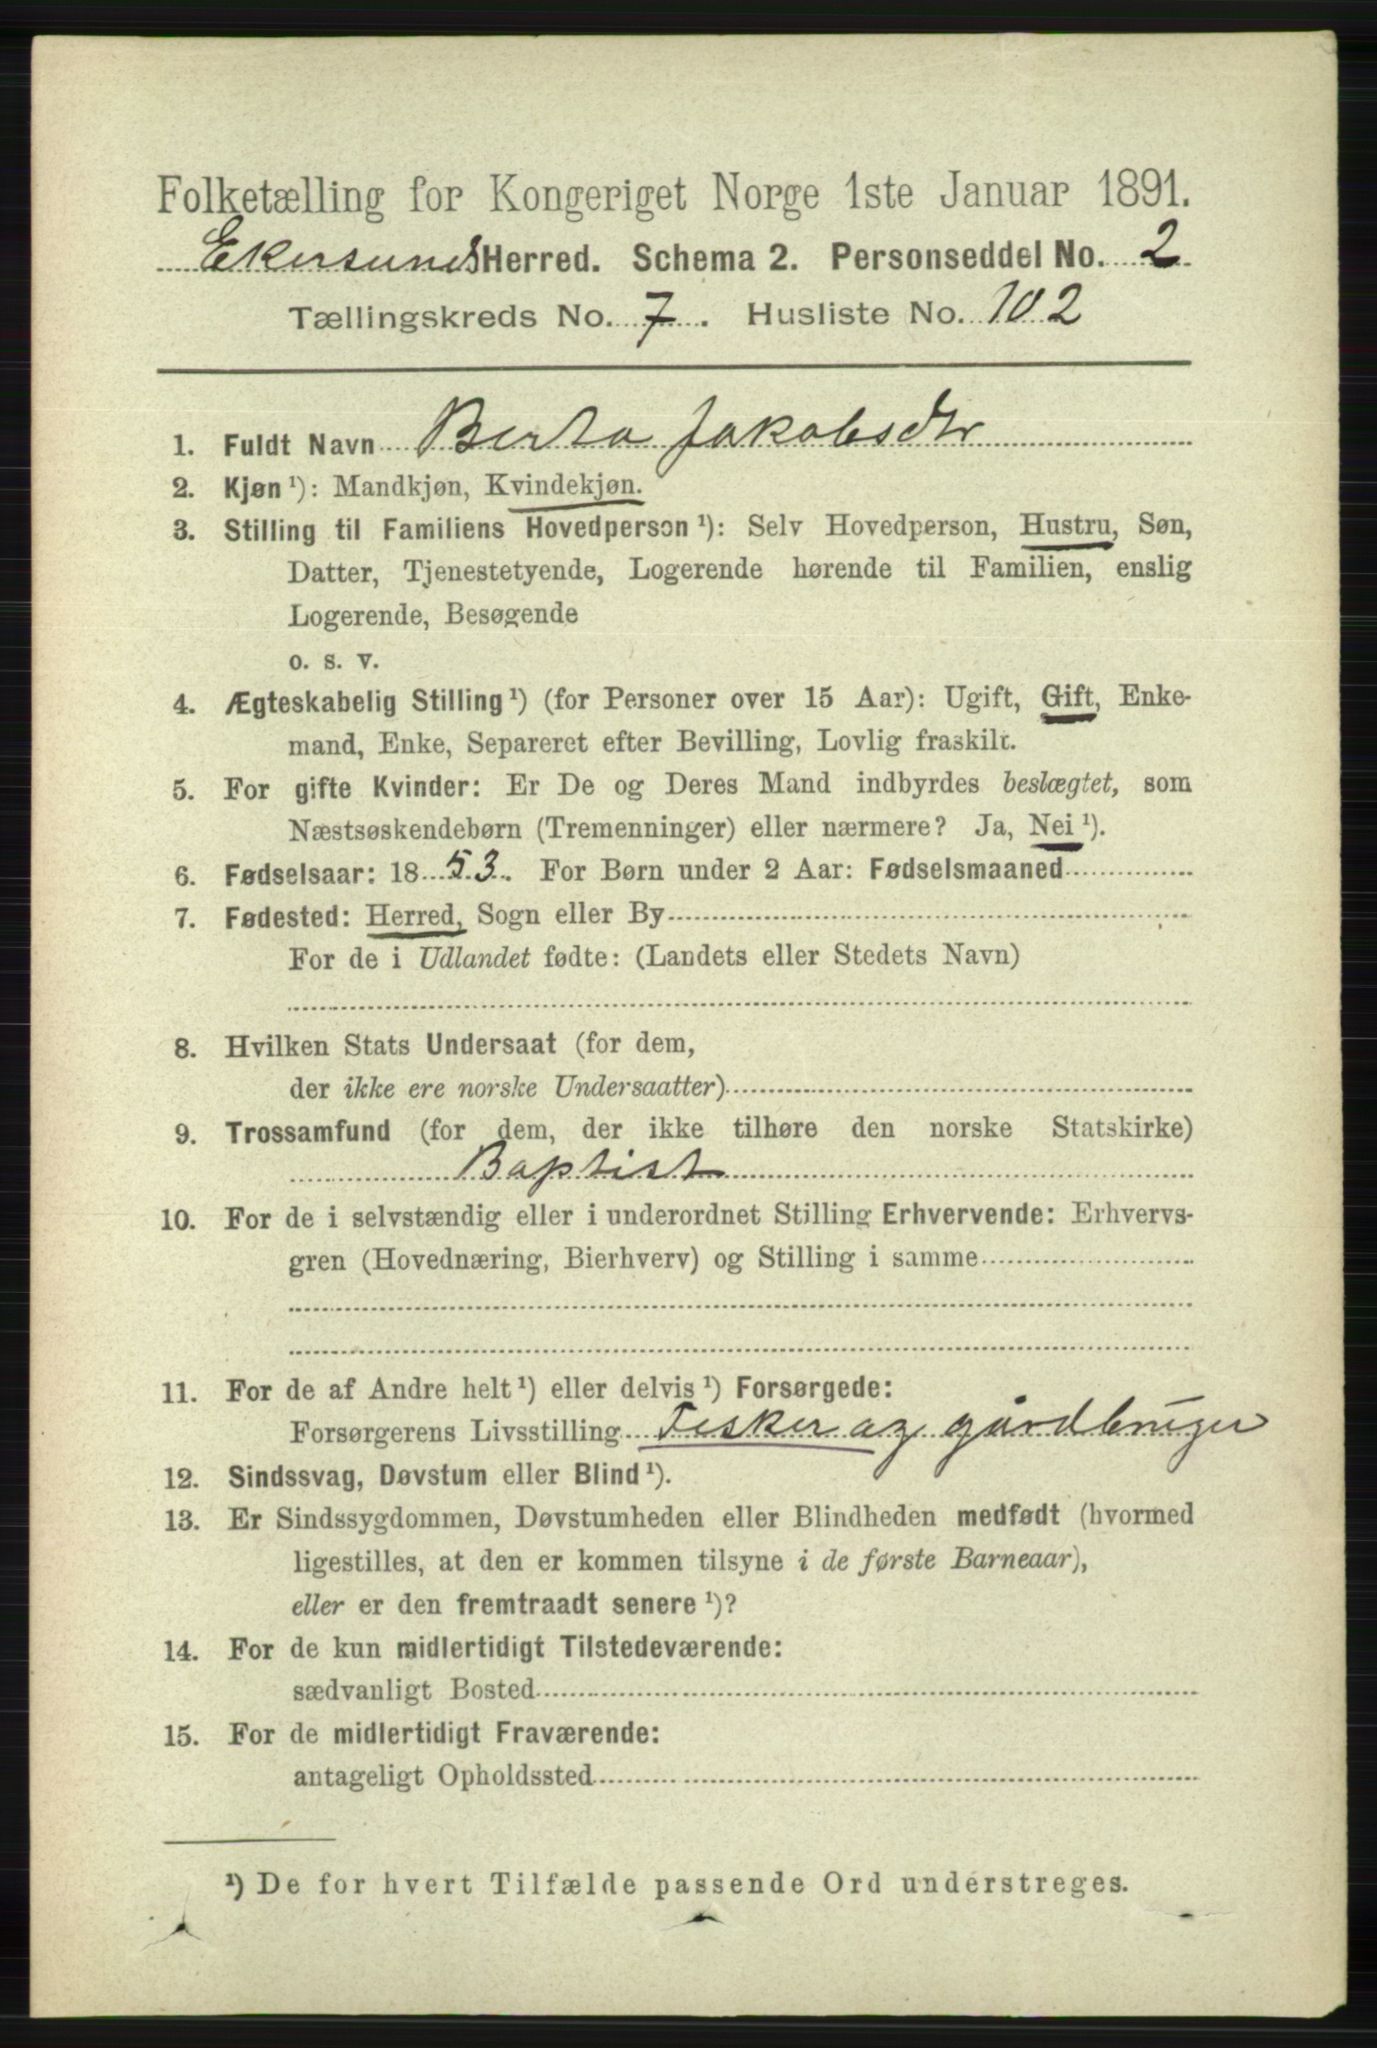 Folketælling for Kongeriget Norge 1ste Januar 1891.
Ekersund Herred. Schema 2. Personseddel No. 2
Tællingskreds No. 7. Husliste No. 102
1. Fuldt Navn Berta Jakobsdtr
2. Kjøn ¹): Mandkjøn, Kvindekjøn.
3. Stilling til Familiens Hovedperson ¹): Selv Hovedperson, Hustru, Søn,
Datter, Tjenestetyende, Logerende hørende til Familien, enslig
Logerende, Besøgende
o. s. v.
4. Ægteskabelig Stilling ¹) (for Personer over 15 Aar): Ugift, Gift, Enke-
mand, Enke, Separeret efter Bevilling, Lovlig fraskilt.
5. For gifte Kvinder: Er De og Deres Mand indbyrdes beslægtet, som
Næstsøskendebørn (Tremenninger) eller nærmere? Ja, Nei ¹).
6. Fødselsaar: 1853. For Børn under 2 Aar: Fødselsmaaned
7. Fødested: Herred, Sogn eller By
For de i Udlandet fødte: (Landets eller Stedets Navn)
8. Hvilken Stats Undersaat (for dem,
der ikke ere norske Undersaatter)
9. Trossamfund (for dem, der ikke tilhøre den norske Statskirke)
Baptist
10. For de i selvstændig eller i underordnet Stilling Erhvervende: Erhvervs-
gren (Hovednæring, Bierhverv) og Stilling i samme
11. For de af Andre helt ¹) eller delvis ¹) Forsørgede:
Forsørgerens Livsstilling Fisker og gårdbruger
12. Sindssvag, Døvstum eller Blind ¹).
13. Er Sindssygdommen, Døvstumheden eller Blindheden medfødt (hvormed
ligestilles, at den er kommen tilsyne i de første Barneaar),
eller er den fremtraadt senere ¹)?
14. For de kun midlertidigt Tilstedeværende:
sædvanligt Bosted
15. For de midlertidigt Fraværende:
antageligt Opholdssted
¹) De for hvert Tilfælde passende Ord understreges.